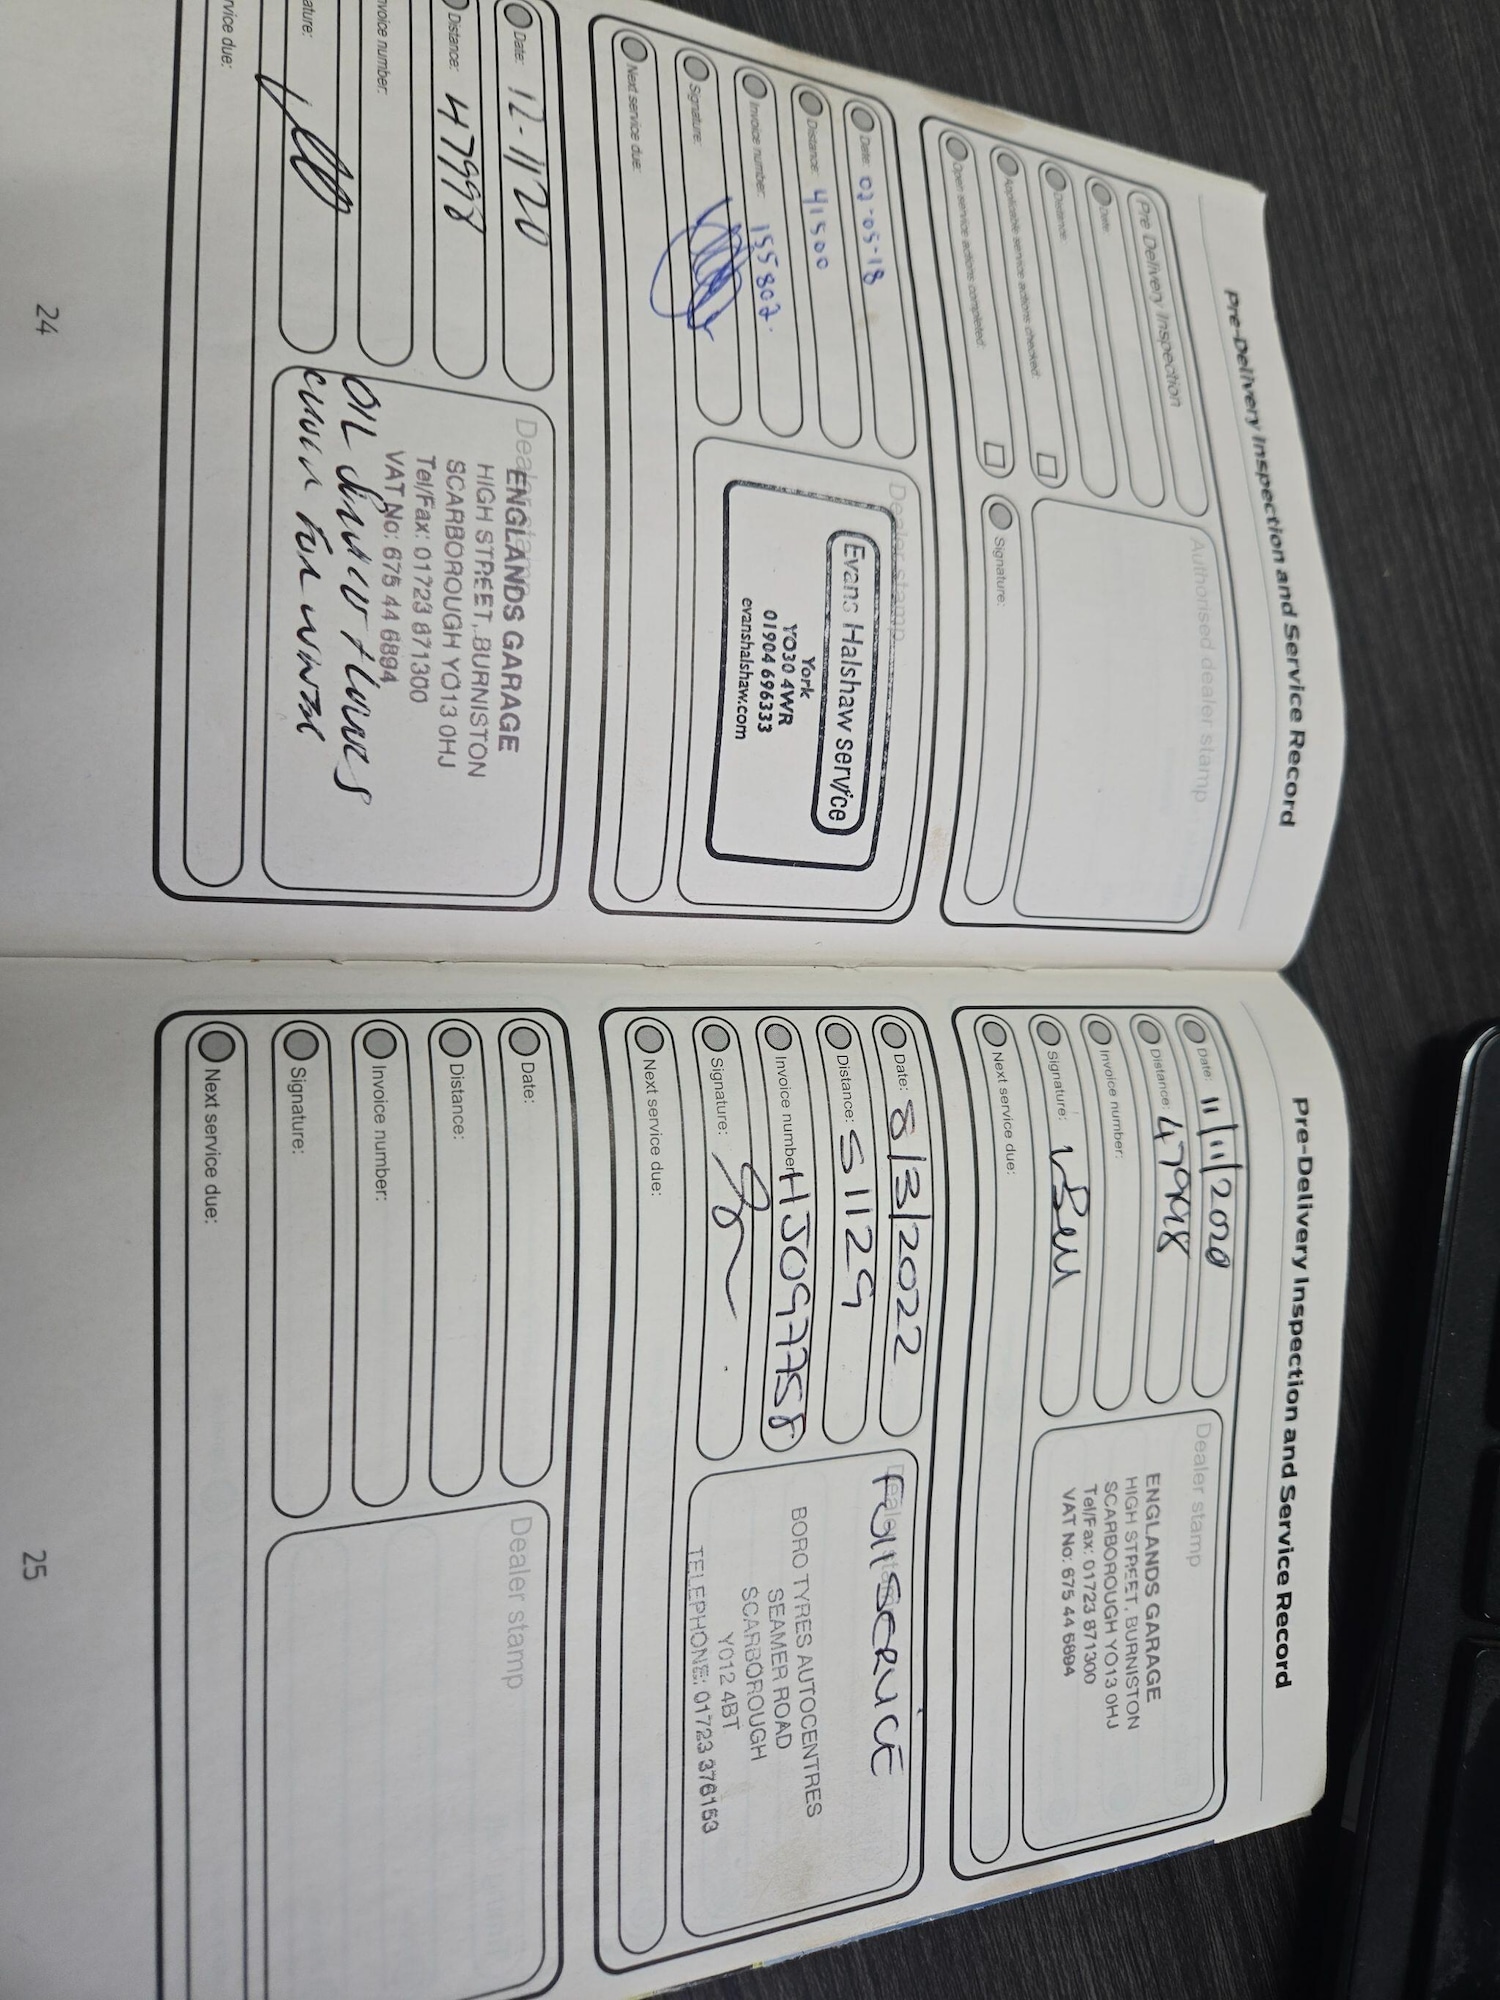 Pre-Delivery Inspection and Service Record
Pre Delivery Inspection
Date:
Distance:
Applicable service actions checked:
Open service actions completed:
Authorised dealer stamp
Signature:
Date: 02-05-18
Distance: 41500
Invoice number: 155802.
Signature:
Next service due:
Dealer stamp
Evans Halshaw service
York
YO30 4WR
01904 696333
evanshalshaw.com
Date: 12-11-20
Distance: 47998
nvoice number:
ature:
rvice due:
Dealer stamp
ENGLANDS GARAGE
HIGH STREET, BURNISTON
SCARBOROUGH YO13 0HJ
Tel/Fax: 01723 871300
VAT No: 675 44 6894
OIL
24
Pre-Delivery Inspection and Service Record
Date: 11/11/2020
Distance: 47998
Invoice number:
Signature:
Next service due:
Dealer stamp
ENGLANDS GARAGE
HIGH STREET, BURNISTON
SCARBOROUGH YO13 0HJ
Tel/Fax: 01723 871300
VAT No: 675 44 6894
Date: 8/3/2022
Distance: 51129
Invoice number: HJ097758
Signature:
Next service due:
Dealer stamp
FULL SERVICE
BORO TYRES AUTOCENTRES
SEAMER ROAD
SCARBOROUGH
YO12 4BT
TELEPHONE: 01723 376153
Date:
Distance:
Invoice number:
Signature:
Next service due:
Dealer stamp
25